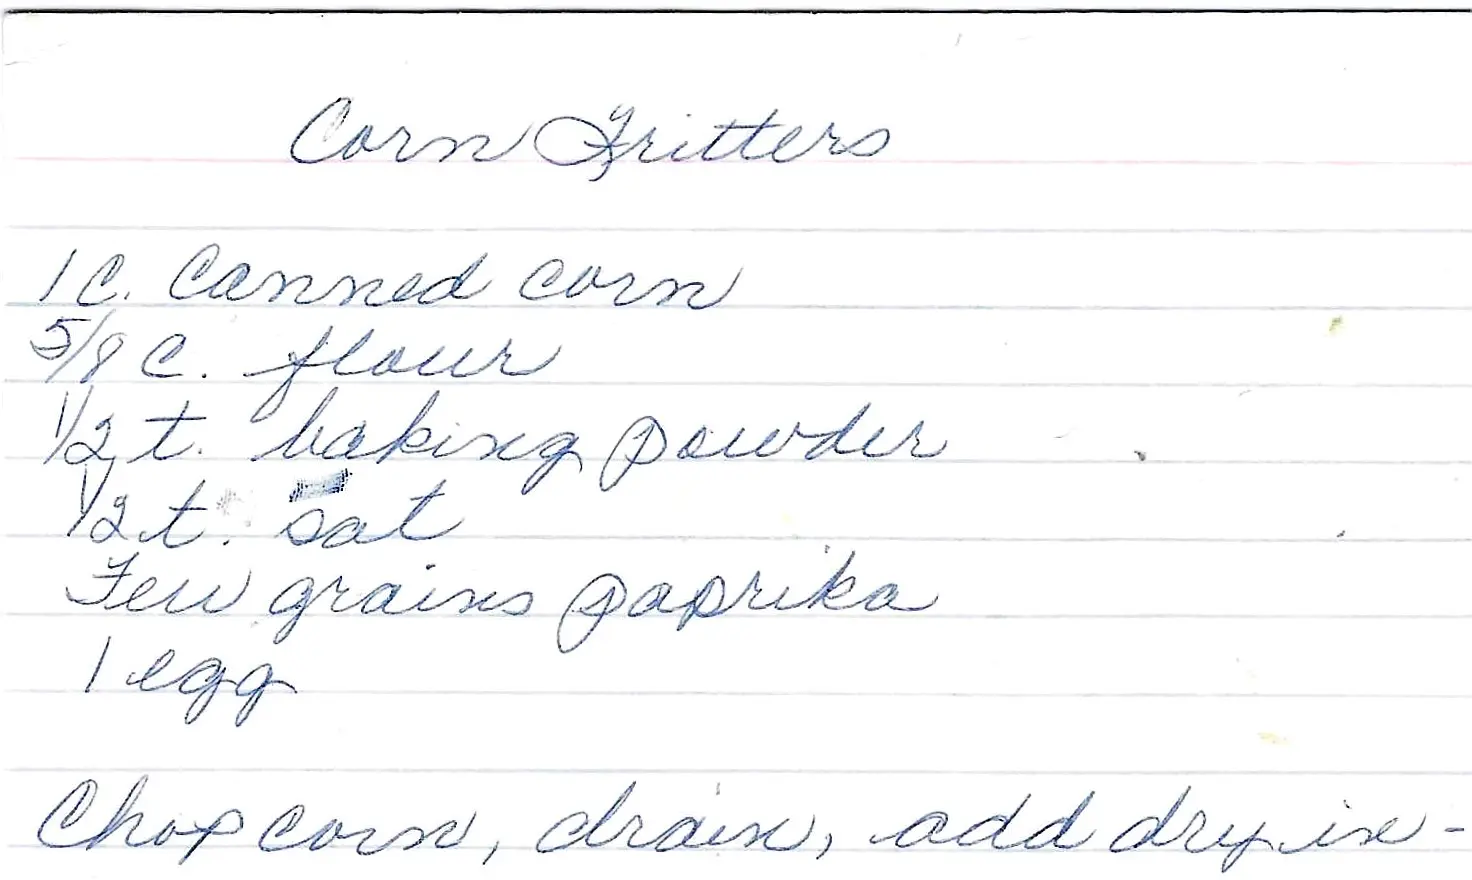 Corn Fritters
1 C. Canned corn
5/8 C. flour
1/2 t. baking powder
1/2 t. sat
Few grains paprika
1 egg
Chop corn, drain, add dry in-